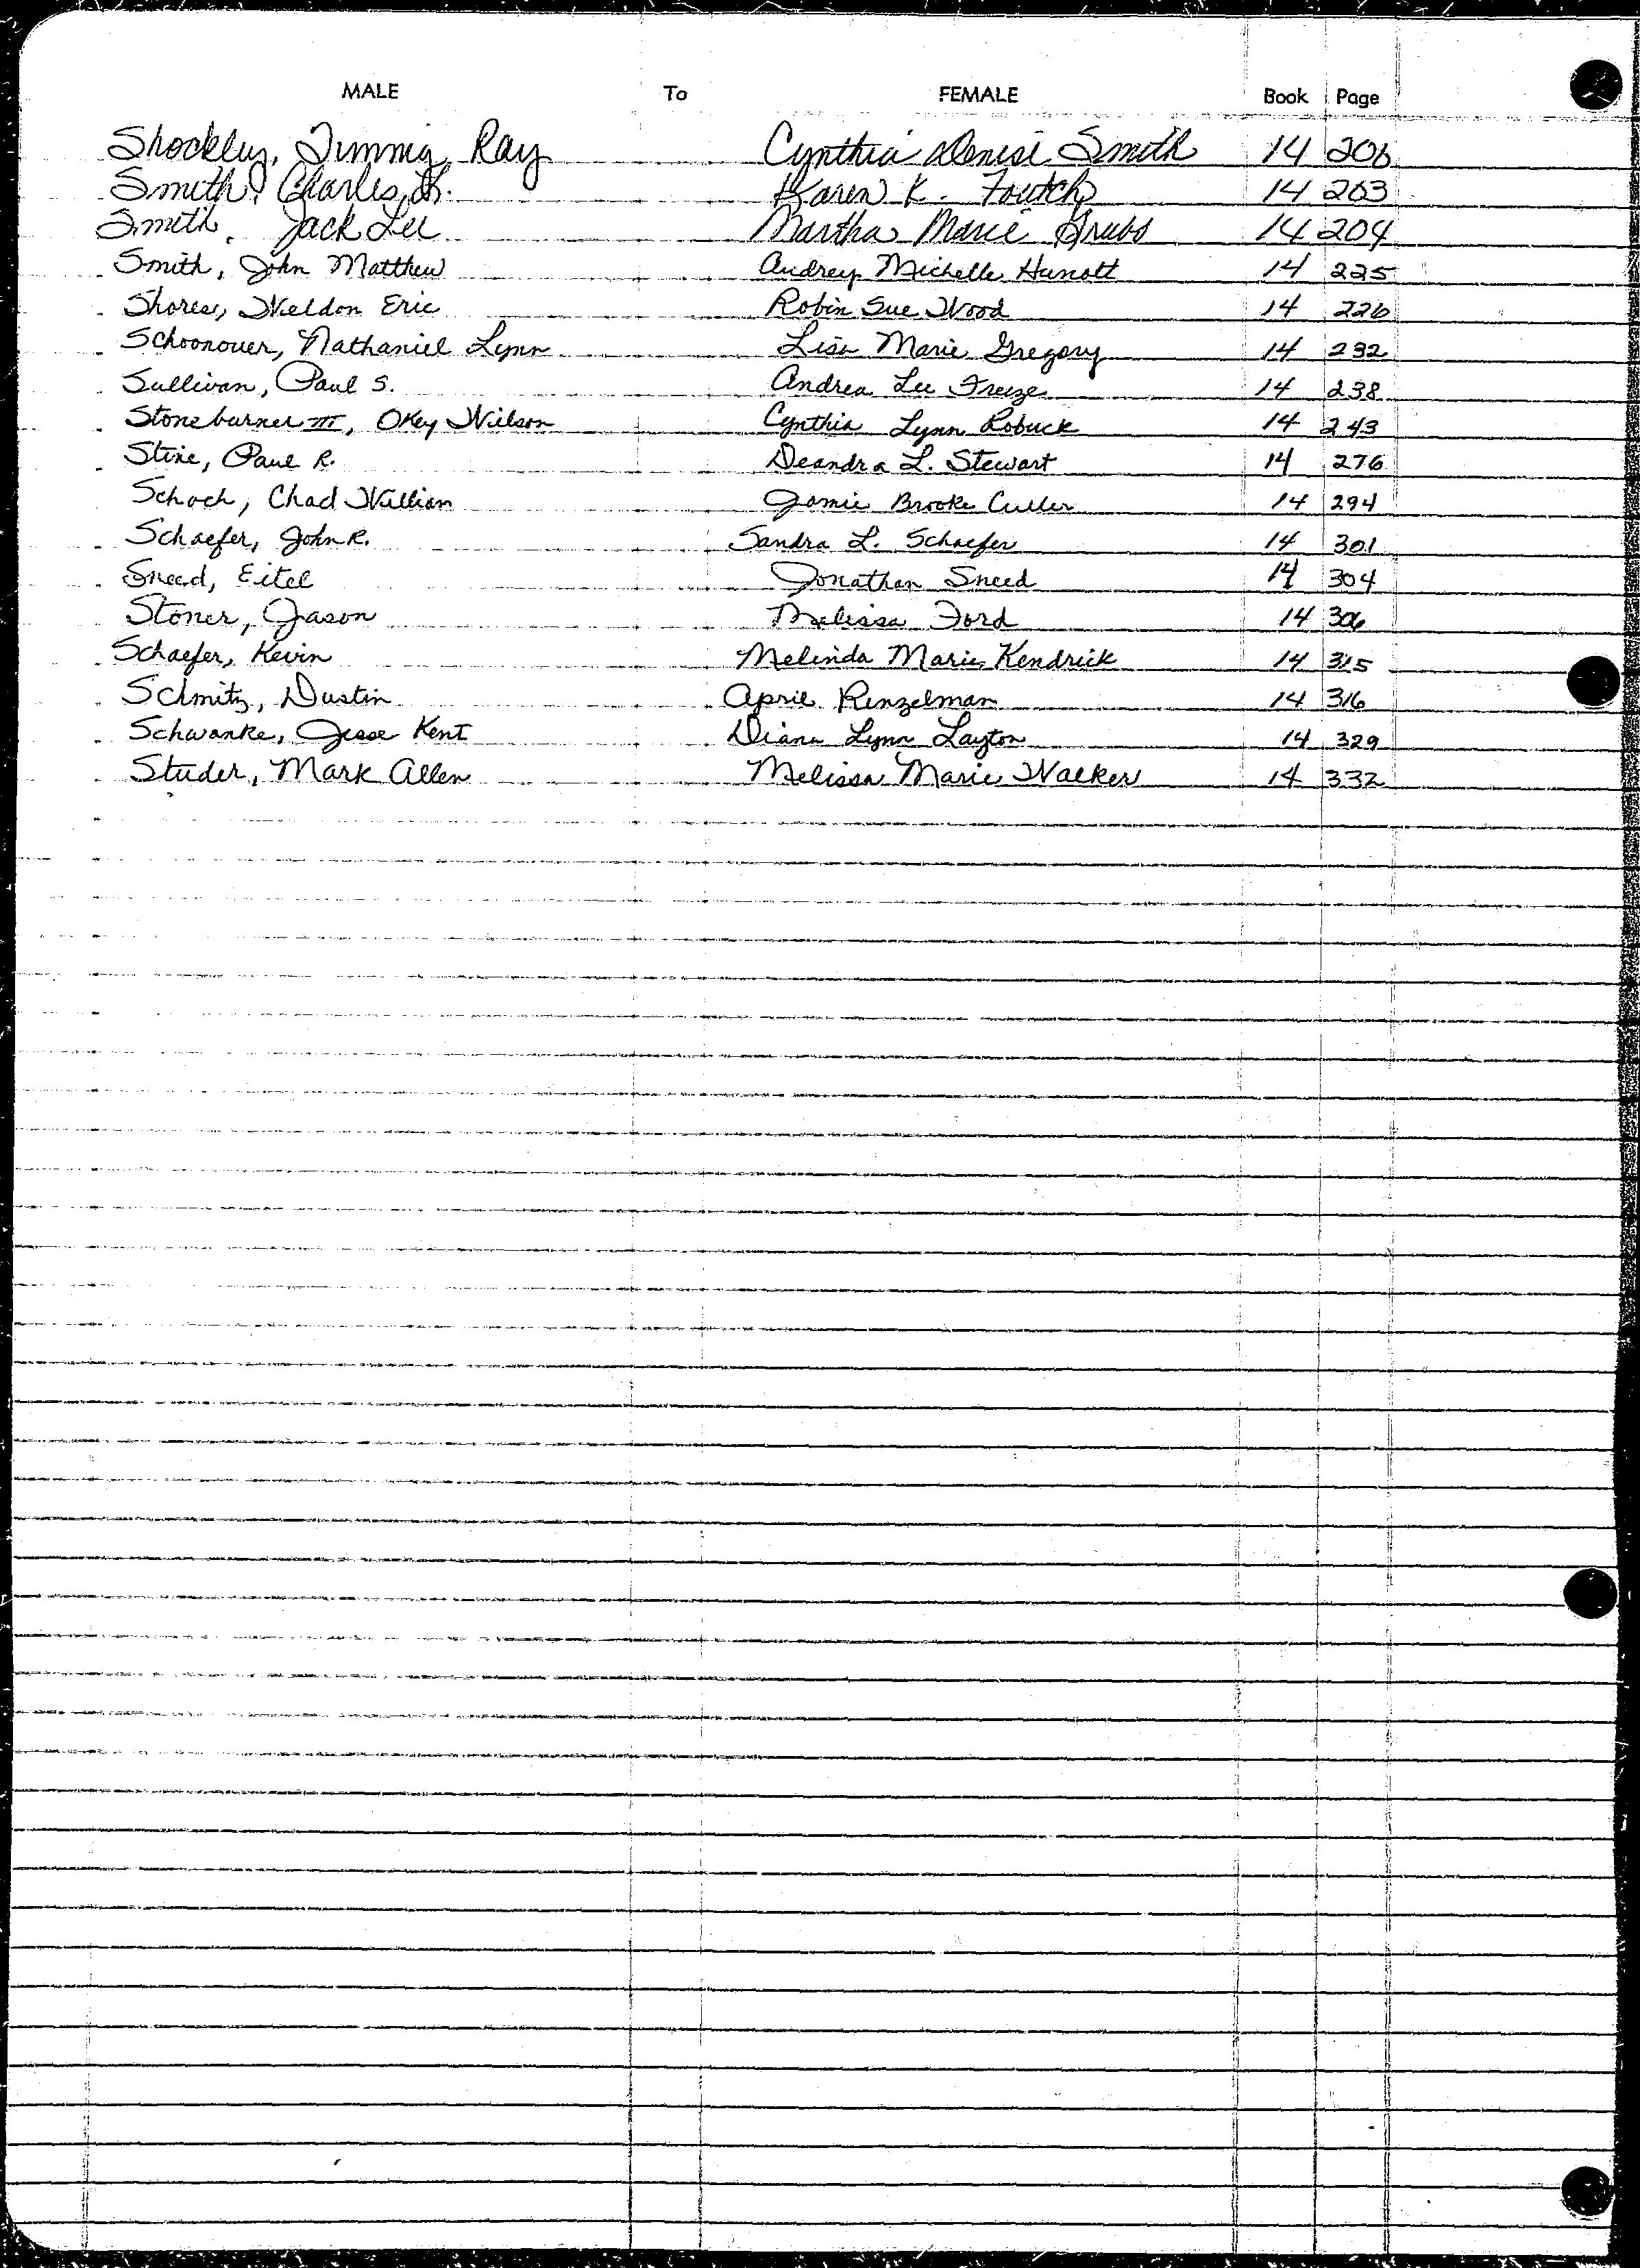 MALE To FEMALE Book Page
Shockley, Timmy Ray Cynthia Denise Smith 14 206
Smith, Charles, Jr. Karen K. Foutch 14 203
Smith, Jack Lee Martha Marie Grubb 14 204
Smith, John Matthew Audrey Michelle Hunott 14 225
Shores, Weldon Eric Robin Sue Wood 14 226
Schoonover, Nathaniel Lynn Lisa Marie Gregory 14 232
Sullivan, Paul S. Andrea Lee Freeze 14 238
Stoneburner III, Okey Wilson Cynthia Lynn Robuck 14 243
Stine, Paul R. Deandra L. Stewart 14 276
Schoch, Chad William Jamie Brooke Culler 14 294
Schaefer, John R. Sandra L. Schaefer 14 301
Sneed, Eitel Jonathan Sneed 14 304
Stoner, Jason Melissa Ford 14 306
Schaefer, Kevin Melinda Marie Kendrick 14 315
Schmitz, Dustin April Renzelman 14 316
Schwanke, Jesse Kent Diana Lynn Layton 14 329
Studer, Mark Allen Melissa Marie Walker 14 332